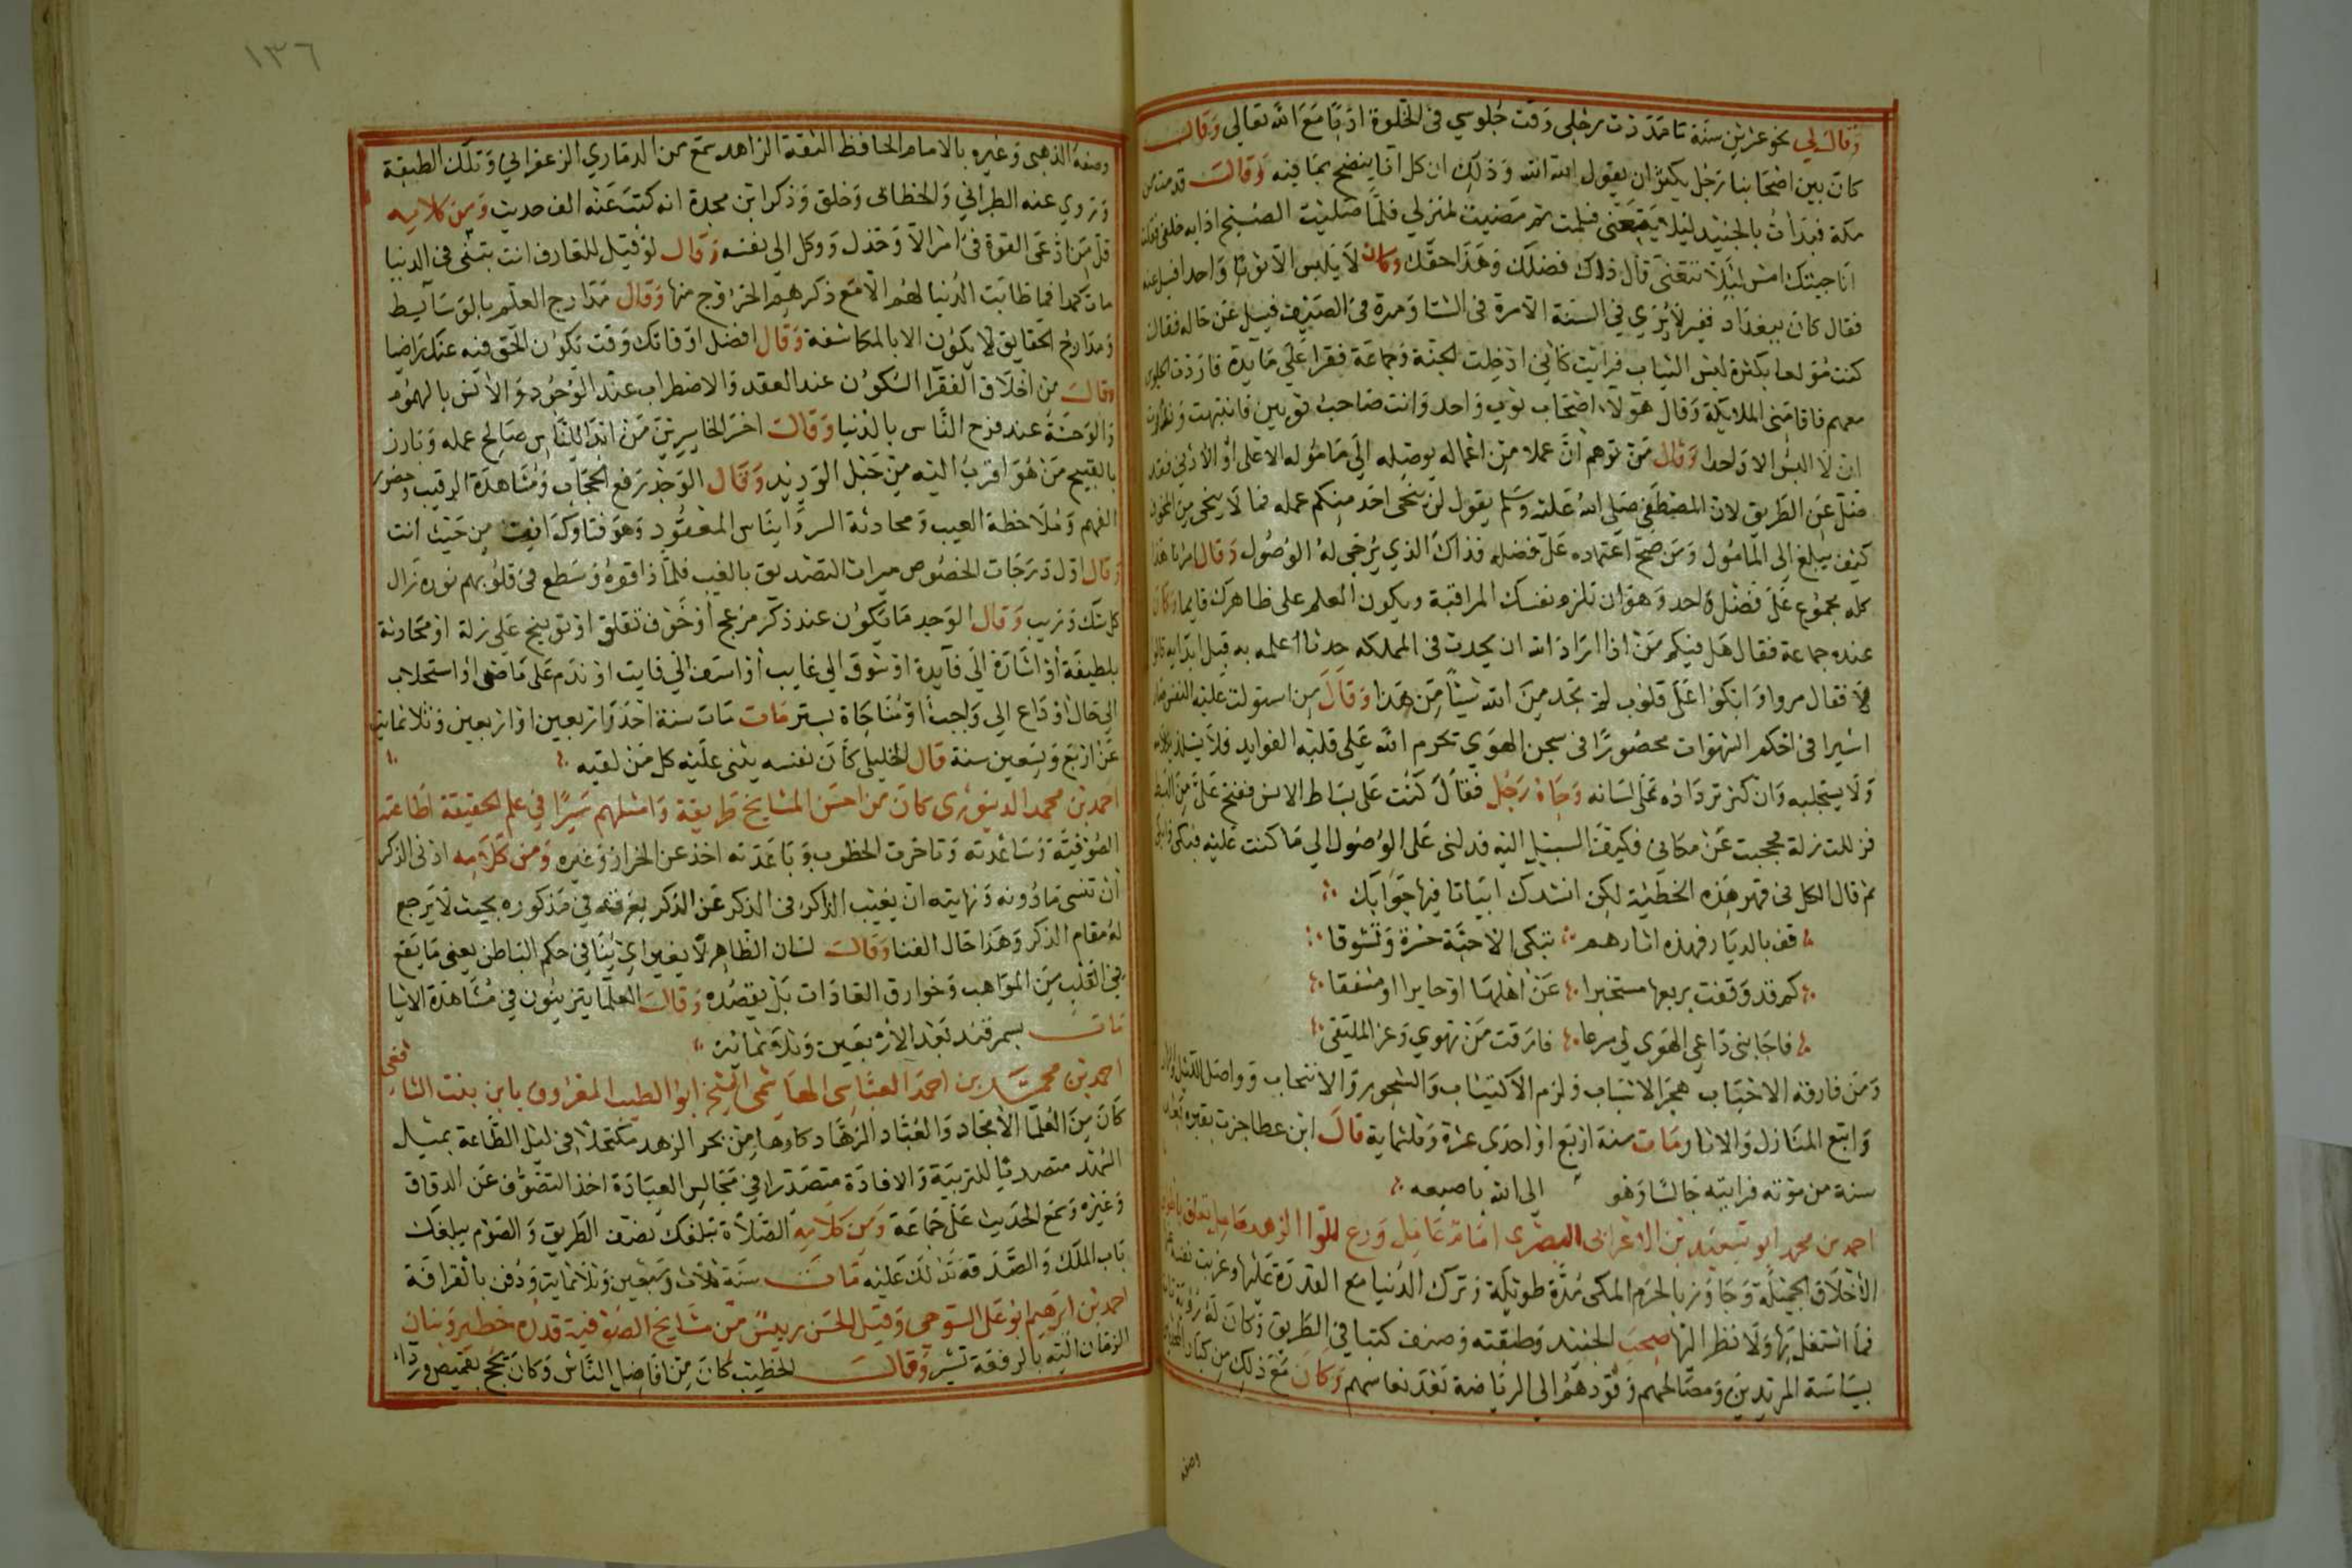 وقال لي نحو عشرين سنة ما مددت رجلي وقت جلوسي في الخلوة ادبا مع الله تعالي وقال
كان بين اصحابنا رجل يكثر ان يقول الله الله وذلك ان كل انا ينضح بما فيه وقال قدمت من
مكة فبدات بالجنيد ليلا يتعنى فسلمت ثم مضيت لمنزلي فلما صليت الصبح اذا به خلفي فقلت
انا جيتك امس ليلا تتعنى قال ذلك فضلك وهذا حقك وكان لا يلبس الا ثوبا واحدا فسيل عنه
فقال كان ببغداد فقير لا يري في السنة الا مرة في الشتا ومرة في الصيف فسيل عن حاله فقال
كنت مولعا بكثرة لبس الثياب فرايت كاني ادخلت الجنة وجماعة فقرا علي مايدة فاردت الجلوس
معهم فاقامني الملايكة وقال هولا اصحاب ثوب واحد وانت صاحب ثوبين فانتبهت ونذرت
ان لا البس الا واحدا وقال من توهم ان عملا من اعماله يوصله الي مأموله الاعلى او الادني فقد
ضل عن الطريق لان المصطفي صلي الله عليه وسلم يقول لن ينجى احد منكم عمله فما لا ينجى من المخوف
كيف يبلغ الي المامول ومن صح اعتماده على فضله فذاك الذي يرجي له الوصول وقال امرنا هذا
كله مجموع على فصل واحد وهو ان تلزم نفسك المراقبة ويكون العلم على ظاهرك قايما وكان
عنده جماعة فقال هل فيكم من اذا اراد الله ان يحدث في المملكة حدثا اعلمه به قبل ابدايه قالوا
لا فقال مروا وابكوا على قلوب لم تجد من الله شيئا من هذا وقال من استولت عليه النفس صار
اسيرا في احكم الشهوات محصورا في سجن الهوي تحرم الله علي قلبه الفوايد فلا يستلذ بكلامه
ولا يستجلبه وان كثر تردادنه على لسانه وجاه رجل فقال كنت على بساط الانس ففتح علي من البسط
فزللت زلة فحجبت عن مكاني فكيف السبيل اليه فدلني على الوصول الي ما كنت عليه فبكي
ثم قال الكل في قهر هذه الخطية لكن انشدك ابياتا فيها جوابك
قف بالديار فهذه اثارهم تبكي الاحبة حسرة وتشوقا
كم قد وقفت بربعها مستخبرا عن اهلها او حايرا او مشفقا
فاجابني داعي الهوي لي مسرعا فارقت من تهوي وعز الملتقى
ومن فارقه الاحباب هجر الانتساب ولزم الاكتياب والسجور والانتحاب وواصل
واتبع المنازل والاثار ومات سنة اربع او احدي عشرة وثلثماية قال ابن عطا جزت بقبره بعد
سنة من موته فرايته جالسا وهو الي الله باصبعه
احمد بن محمد ابو سعيد بن الاعرابي البصري امام عامل ورع للوا الزهد حامل
الاخلاق الجميلة وجاور بالحرم المكي مدة طويلة وترك الدنيا مع القدرة عليها وعزبت نفسه
فما اشتغل بها ولا نظر اليها صحب الجنيد وطبقته وصنف كتبا في الطريق وكان له
بسياسة المريدين ومصالحهم وقودهم الي الرياضة بعد نفاسهم وكان مع ذلك من كبار
وصفه
١٣٦
وصفه الذهبي وغيره بالامام الحافظ الثقة الزاهد سمع من الدماري الزعفراني وتلك الطبقة
وروي عنه الطبراني والخطابي وخلق وذكر ابن محمدة انه كتب عنه الف حديث ومن كلامه
قل من ادعى القوة في امر الا وخذل ووكل الي نفسه وقال لو قيل للعارف انت تبقي في الدنيا
مات كمدا فما طابت الدنيا لهم الا مع ذكرهم الخروج منها وقال مدارج العلم بالوسايط
ومدارج الحقايق لا يكون الا بالمكاشفة وقال افضل اوقاتك وقت يكون الحق فيه عنك راضيا
وقال من اخلاق الفقرا السكون عند الفقد والاضطراب عند الوجود والانس بالهموم
والوحشة عند فرح الناس بالدنيا وقال اخر الخاسرين من ابدا للناس صالح عمله وبارز
بالقبيح من هو اقرب اليه من حبل الوريد وقال الوجد رفع الحجاب ومشاهدة الرقيب وحضور
الفهم وملاحظة الغيب ومحادثة السر وايناس المفقود وهو فناوك انت من حيث انت
وقال اول درجات الخصوص ميراث التصديق بالغيب فلما ذاقوه وسطع في قلوبهم نوره زال
كل شك وريب وقال الوجد ما يكون عند ذكر مزعج او خوف مقلق او توبيخ على زلة او محادثة
بلطيفة او اشارة الي فايدة او شوق الي غايب او اسف الي فايت او ندم على ما مضي او استجلاب
الي حال او داع الي واجب او مناجاة بستر مات مات سنة احد واربعين او اربعين وثلاثماية
عن اربع وتسعين سنة قال الخليلي كان نفسه يثني عليه كل من لقيه
احمد بن محمد الدينوري كان من احسن المشايخ طريقة وامثلهم سيرا في علم الحقيقة اطاعته
الصوفية وساعدته وتاخرت الخطوب وباعدته اخذ عن الخراز وغيره ومن كلامه ادني الذكر
ان تنسي ما دونه ونهايته ان يغيب الذاكر في الذكر عن الذكر بغرقه في مذكوره بحيث لا يرجع
له مقام الذكر وهذا حال الفنا وقال لسان الظاهر لا يغير اي شيا في حكم الباطن يعني ما يقع
في القلب من المواهب وخوارق العادات بل يقصده وقال العلما يتزينون في مشاهدة الاشيا
مات بسمرقند بعد الاربعين وثلاثمائة
احمد بن محمد بن احمد العباسي الهاشمي الشيخ ابو الطيب المعروف بابن بنت الشافعي
كان من العلما الامجاد والعباد الزهاد كارها من بحر الزهد مكتحلا في ليل الطاعة بميل
السهد متصديا للتربية والافادة متصدرا في مجالس العبادة اخذ التصوف عن الدقاق
وغيره وسمع الحديث على جماعة ومن كلامه الصلاة تبلغك نصف الطريق والصوم يبلغك
باب الملك والصدقة تدلك عليه مات سنة ثلاث وسبعين وثلاثماية ودفن بالقرافة
احمد بن ابرهيم ابو على السوحي وقيل الحسن رييس من مشايخ الصوفية قدره خطير وبنان
الزمان اليه بالرفعة تشير وقال الخطيب كان من افاضل الناس وكان يحج بقميص ورداء